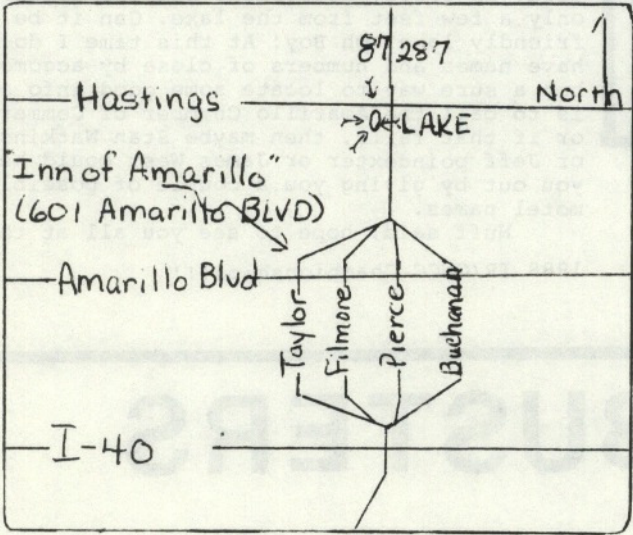 87 287
Hastings
North
LAKE
Inn of Amarillo"
(601 Amarillo BLVD)
Amarillo Blvd
Taylor
Filmore
Pierce
Buchanan
I-40